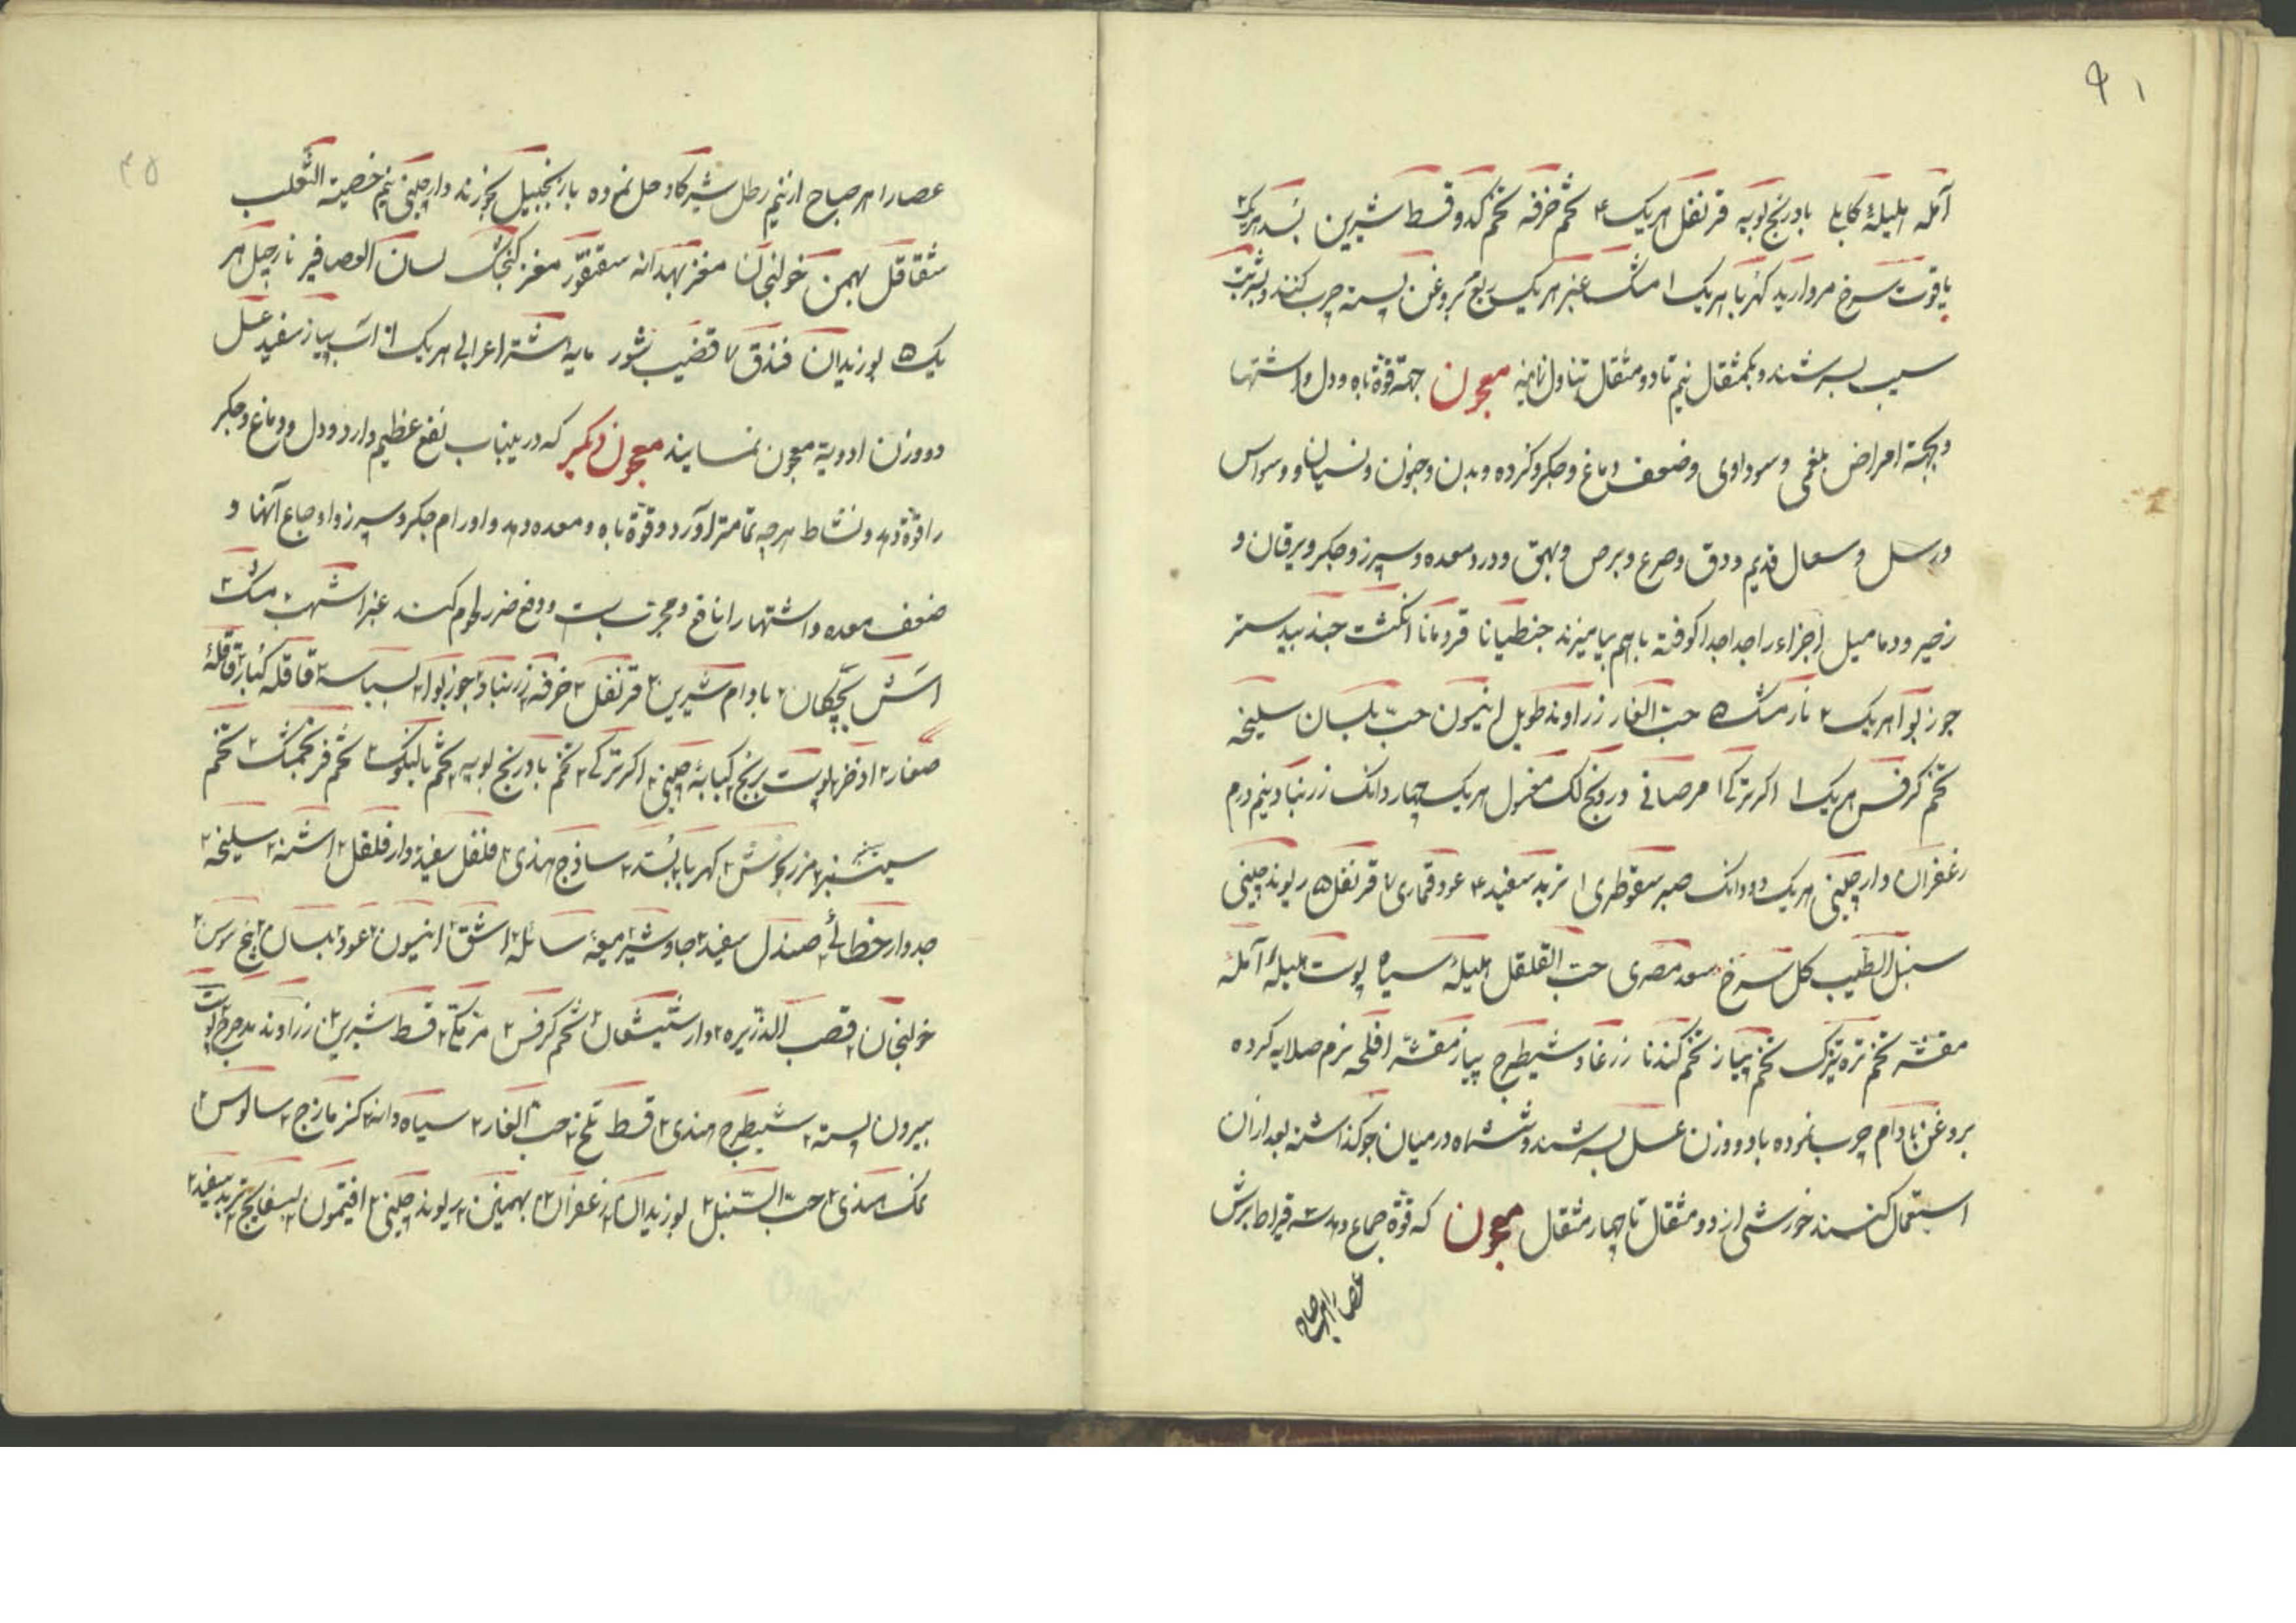 ۹۱
آمله هلیلهٔ کابلی بادرنج بویه قرنفل هریک ۴ تخم خرفه تخم کدو قسط شیرین بسد هریک ۲
یاقوت سرخ مروارید کهربا هریک ۱ مشک عنبر هریک ربع بروغن پسته چرب کنند و بشربت
سیب بسرشند و یکمثقال نیم تا دو مثقال تناول نمایند معجون جهة قوّة باه و دل و اشتها
و بجهة امراض بلغمی و سوداوی و ضعف دماغ و جگر و گرده و بدن و جنون و نسیان و وسواس
و سل و سعال قدیم و دق و صرع و برص و بهق و درد معده و سپرز و جگر و یرقان و
زحیر و دمامیل اجزاء را جدا جدا کوفته باهم بیامیزند جنطیانا قردمانا انگشت جندبیدستر
جوزبوا هریک ۲ نارمشک ۵ حبّ الغار زراوند طویل انیسون حبّ بلسان سلیخه
تخم کرفس هریک ۱ اکرترکی ۱ مرصافی درونج لک مغسول هریک چهار دانک زرنباد نیم درم
زعفران دارچینی هریک دو دانک صبر سقوطری ۱ تربد سفید ۴ عود قماری ۷ قرنفل ۵ ریوند چینی
سنبل الطیب کل سرخ سعد مصری حبّ القلقل هلیلهٔ سیاه پوست هلیلهٔ آمله
مقشّر تخم تره تیزک تخم پیاز تخم کندنا زرنباد شیطرج پیاز مقشّر افلحی نرم صلایه کرده
بروغن بادام چرب نموده با دو وزن عسل بسرشند و ششماه در میان جو گذاشته بعد از آن
استعمال کنند خورش از دو مثقال تا چهار مثقال معجون که قوّة جماع دهد سه قیراط برش
عصارا هر صباح
۴۵
عصارا هر صباح از نیم رطل شیر کاو حل نموده با زنجبیل بخورند دارچینی نیم خصیة الثّعلب
شقاقل بهمن خولنجان مغز بهدانه سقنقور مغز کنجشک لسان العصافیر نارجیل هر
یک ۵ بوزیدان فندق ۷ قضیب ثور مایهٔ شتر اعرابی هریک ۱۰ آب پیاز سفید عسل
دو وزن ادویة معجون نمایند معجون دیگر که درینباب نفع عظیم دارد و دل و دماغ و جگر
را قوّة دهد و نشاط هرچه تمامتر آورد و قوّة باه و معده دهد و اورام جگر و سپرز و اوجاع آنها و
ضعف معده و اشتها را نافع و مجرّبست و دفع ضرر سموم کند عنبر اشهب مشک ۲
اشنه بادام شیرین ۲ قرنفل ۲ خرفه زرنباد جوزبوا ۲ بسباسه ۲ قاقلهٔ کبار ۲ قاقلهٔ
صغار ۲ اذخر پوست ترنج ۲ کبابهٔ چینی ۲ اکرترکی ۲ تخم بادرنج بویه تخم بالنکو ۲ تخم فرنجمشک ۲ تخم
سیسنبر ۲ مرزنجوش ۲ کهربا بسد ۲ ساذج هندی ۲ فلفل سفید دارفلفل ۲ اشنه ۲ سلیخه ۲
جدوار خطائی صندل سفید ۲ جاوشیر ۲ میعهٔ سائله ۲ اشق ۲ انیسون ۲ عود بلسان ۲ بیخ سوس ۲
خولنجان ۲ قصب الذریره ۲ دارشیشعان ۲ تخم کرفس ۲ مرمکی ۲ قسط شیرین ۲ زراوند مدحرج پوست
بیرون پسته ۲ شیطرج هندی ۲ قسط تلخ ۲ حب الغار ۲ سیاه دانه ۲ کزمازج ۲ سالیوس ۲
نمک هندی ۲ حبّ السّنبل ۲ بوزیدان ۲ زعفران ۳ بهمنین ۲ ریوند چینی ۲ افتیمون ۲ بسفایج ۲ تربد سفید ۲